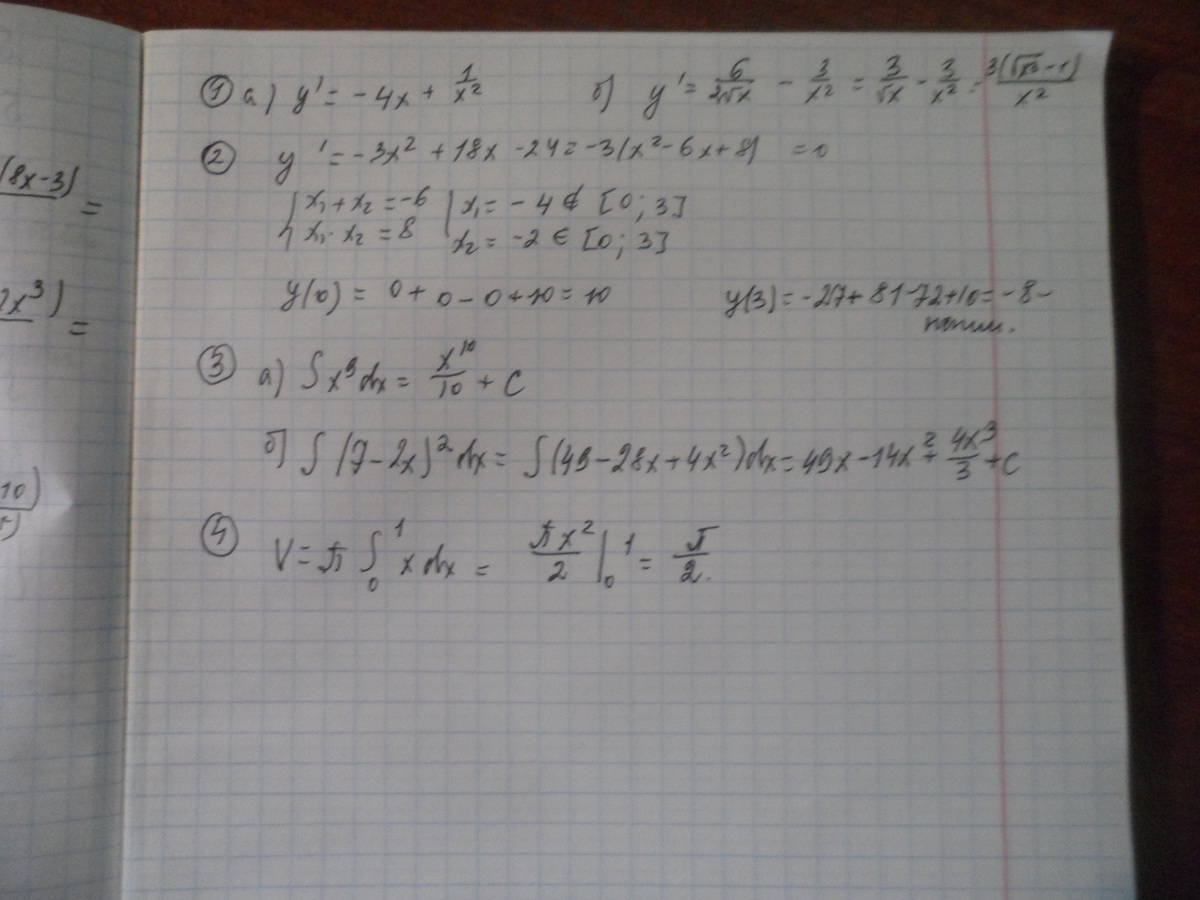 (8x-3) =
2x³) =
10)
① а) y' = -4x + 1/x² б) y' = 6/2√x - 3/x² = 3/√x - 3/x² = 3(√x³-1)/x²
② y' = -3x² + 18x - 24 = -3(x² - 6x + 8) = 0
x₁ + x₂ = -6 | x₁ = -4 ∉ [0; 3]
x₁ · x₂ = 8 x₂ = -2 ∈ [0; 3]
y(0) = 0 + 0 - 0 + 10 = 10 y(3) = -27 + 81 - 72 + 10 = -8 -
наим.
③ а) ∫x⁹dx = x¹⁰/10 + C
б) ∫(7-2x)²dx = ∫(49-28x+4x²)dx = 49x - 14x² + 4x³/3 + C
④ V = π ∫₀¹ x dx = πx²/2 |₀¹ = π/2.